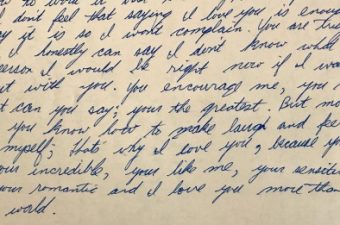 how to word it but
don't feel that saying I love you is enoug
say it is so I wont complain. You are tru
I honestly can say I don't know what
erson I would be right now if I was
t with you. You encourage me, you
t can you say; your the greatest. But mo
you know how to make laugh and fee
myself; that's why I love you, because yo
our incredible, your like me, your sensiti
our romantic and I love you more than
world.